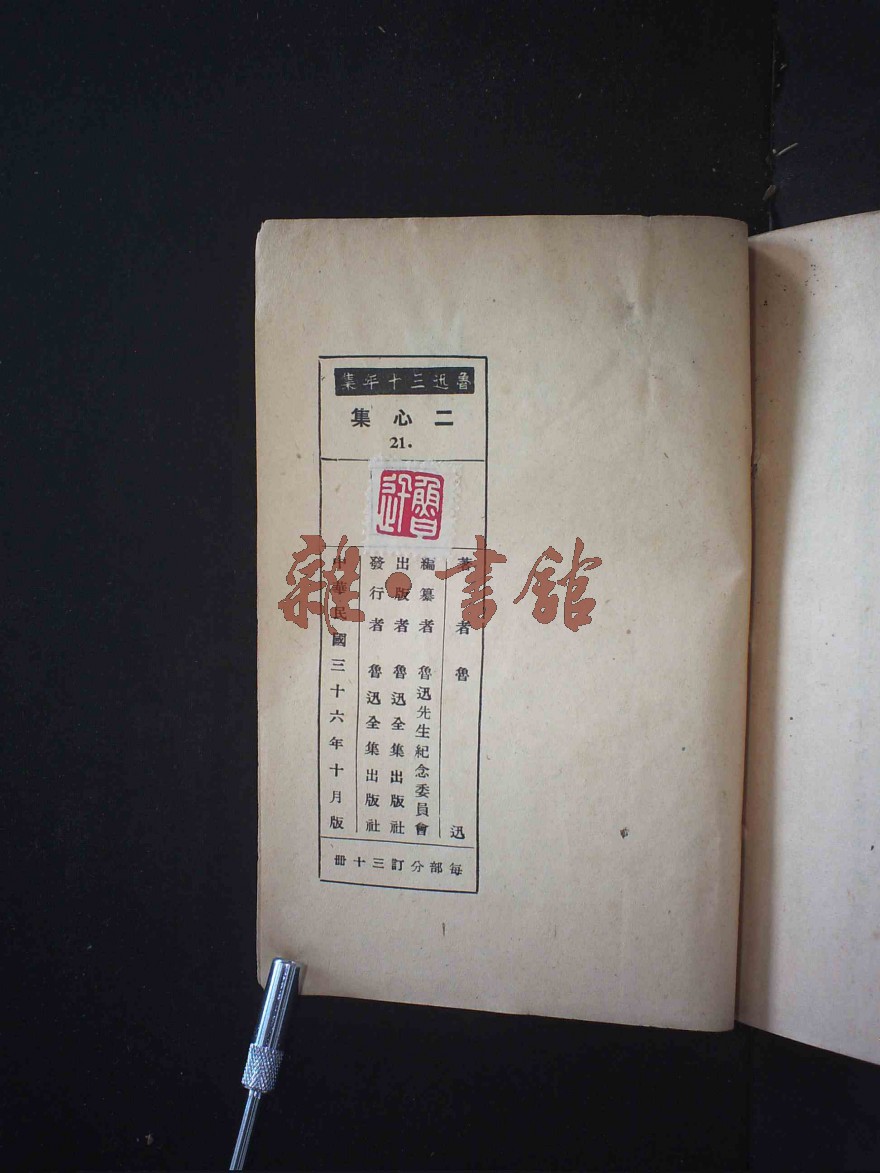 魯迅三十年集
二心集
21.
魯迅
著者魯迅
編纂者 魯迅先生紀念委員會
出版者 魯迅全集出版社
發行者 魯迅全集出版社
中華民國三十六年十月版
每部分訂三十冊
雜·書館